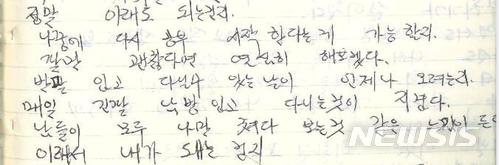 정말 이래도 되는건지.
나중에 다시 공부 시작 한다는게 가능 한지.
잘만 괜찮다면 열심히 해보겠다.
반팔 입고 다닐수 있는 날이 언제나 오려는지.
매일 긴팔 입고 다니는것이 지겹다.
남들이 모두 나만 쳐다 보는것 같은 느낌이
이래서 내가 되는 건지
NEWSIS